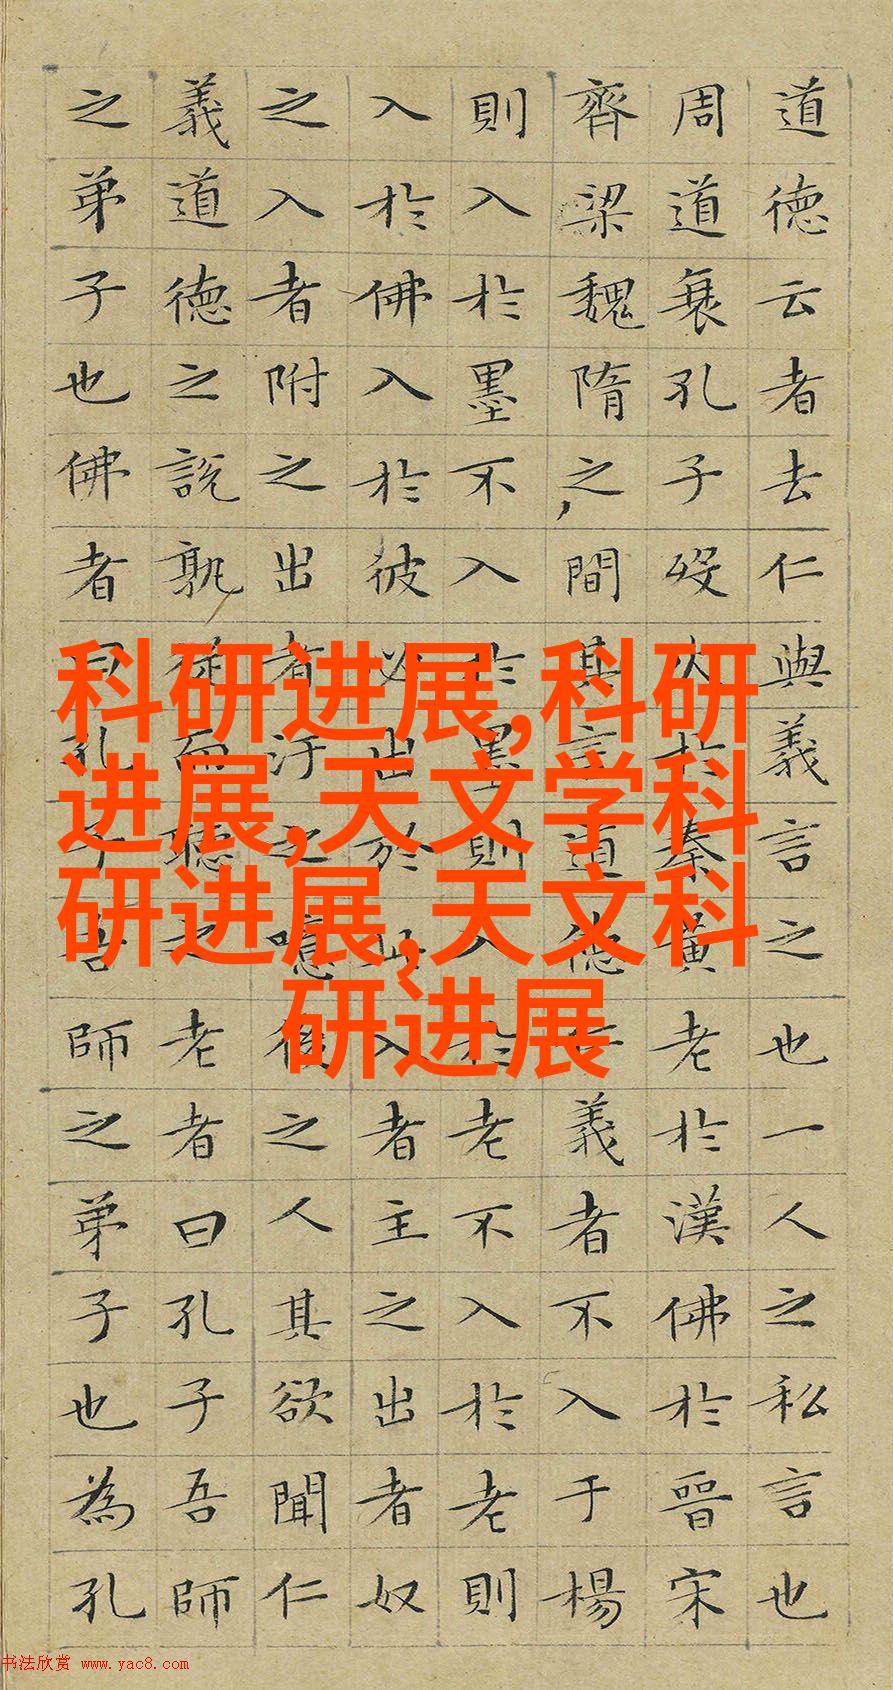 道德云者去仁與義言之也一人之私言也
周道衰孔子歿火於秦黄老於漢佛於晉宋
齊梁魏隋之間其言道德仁義者不入于楊
則入於墨不入於墨則入於老不入於老則
入於佛入於彼必出於此入者主之出者奴
之入者附之出者汙之噫後之人其欲聞仁
義道德之説孰從而聽之老者曰孔子吾師
之弟子也佛者曰孔子吾師之弟子也為孔
科研进展,科研
进展,天文学科
研进展,天文科
研进展
书法欣赏 www.yac8.com